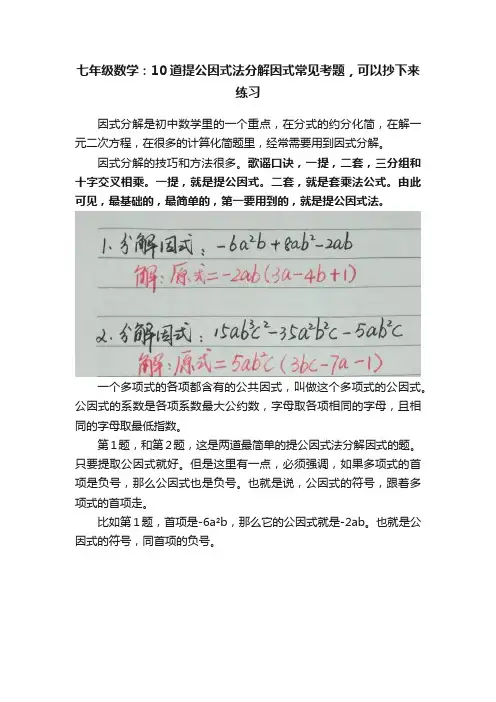 七年级数学：10道提公因式法分解因式常见考题，可以抄下来
练习
因式分解是初中数学里的一个重点，在分式的约分化简，在解一
元二次方程，在很多的计算化简题里，经常需要用到因式分解。
因式分解的技巧和方法很多。歌谣口诀，一提，二套，三分组和
十字交叉相乘。一提，就是提公因式。二套，就是套乘法公式。由此
可见，最基础的，最简单的，第一要用到的，就是提公因式法。
1. 分解因式：-6a²b+8ab²-2ab
解：原式=-2ab(3a-4b+1)
2. 分解因式：15ab³c²-35a²b²c-5ab²c
解：原式=5ab²c(3bc-7a-1)
一个多项式的各项都含有的公共因式，叫做这个多项式的公因式。
公因式的系数是各项系数最大公约数，字母取各项相同的字母，且相
同的字母取最低指数。
第1题，和第2题，这是两道最简单的提公因式法分解因式的题。
只要提取公因式就好。但是这里有一点，必须强调，如果多项式的首
项是负号，那么公因式也是负号。也就是说，公因式的符号，跟着多
项式的首项走。
比如第1题，首项是-6a²b，那么它的公因式就是-2ab。也就是公
因式的符号，同首项的负号。